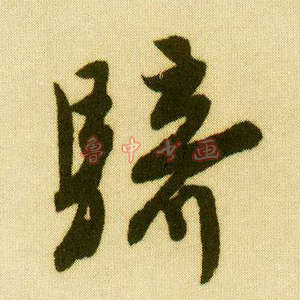 騎
鲁中书画